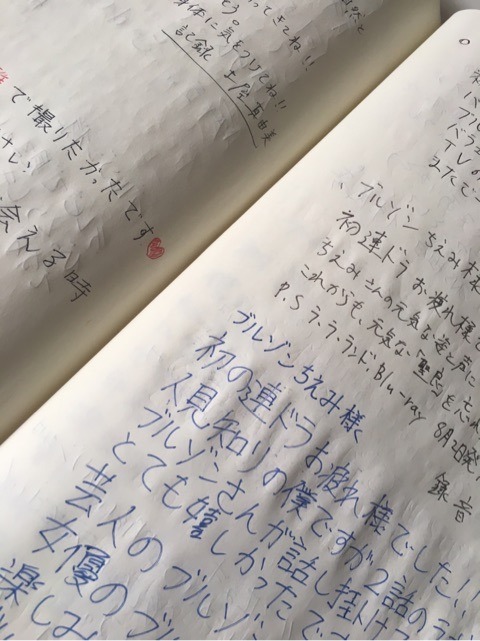 然と
ってきてね!!
う。
身体に気をつけてね!!
記録 土屋真由美
で撮りたかったです
会える時
ブルゾンちえみ様
初連ドラお疲れ様で
ちえみさんの元気な姿と声に
これからも、元気な
P.S ラ・ラ・ランド、Blu-ray 8月2日発
録音
ブルゾンちえみ様
初の連ドラお疲れ様でした!!
人見知りの僕ですが2話のラ
ブルゾンさんが話し掛け
とても嬉しかったで
芸人のブルゾ
女優のブル
楽しみ